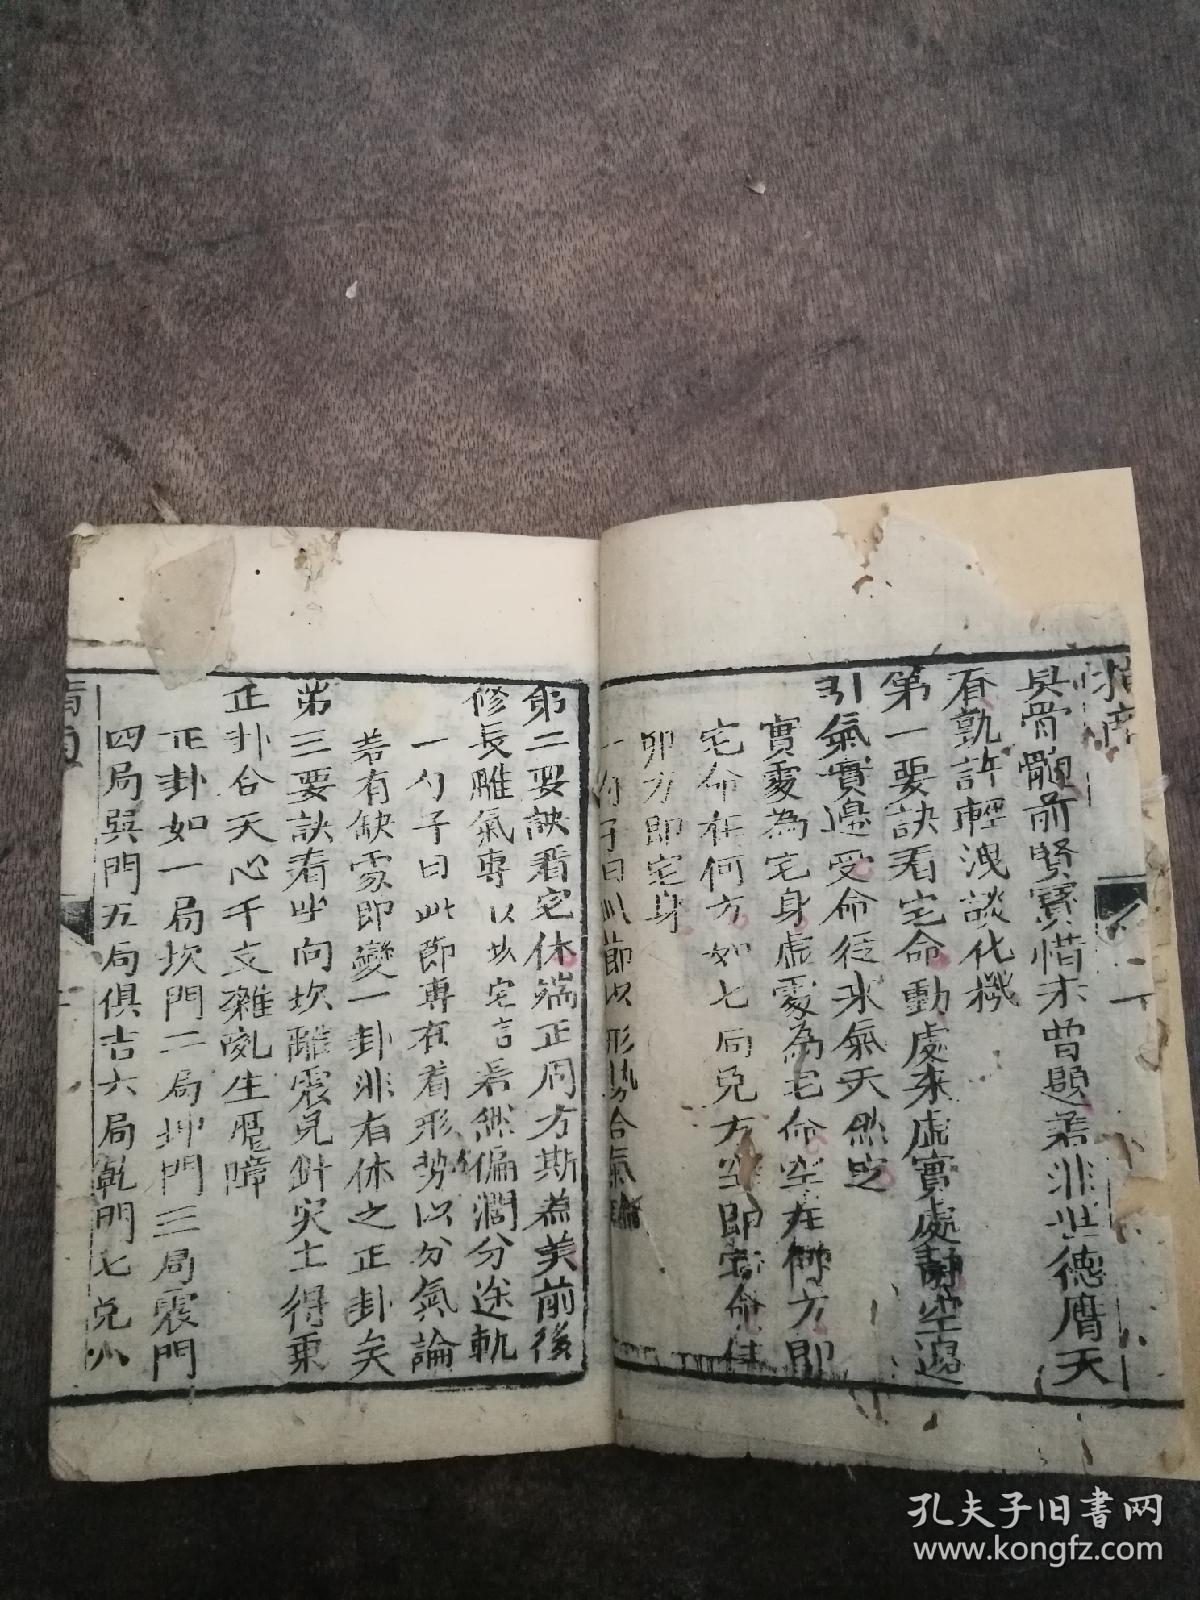 具骨髓前賢寶惜未曾題若非世德膺天
看孰許輕洩談化機
第一要訣看宅命動處來虛實處尋空邊
引氣實邊受命從氷氣天然定
實處為宅身虛處為宅命空在何方即
宅命在何方如七局兌方空即宅命住
卯方即宅身
一勺子曰此節以形勢合氣論
第二要訣看宅体端正周方斯為美前後
修長雕氣專以坎宅言若然偏濶分迷軌
一勺子曰此節專在看形势以分氣論
若有缺處即變一卦非有休之正卦矣
第三要訣看坐向坎離震兌針灾土得東
正卦合天心干支雜亂生魘嶂
正卦如一局坎門二局坤門三局震門
四局巽門五局俱吉六局乾門七兌八
孔夫子旧书网
www.kongfz.com